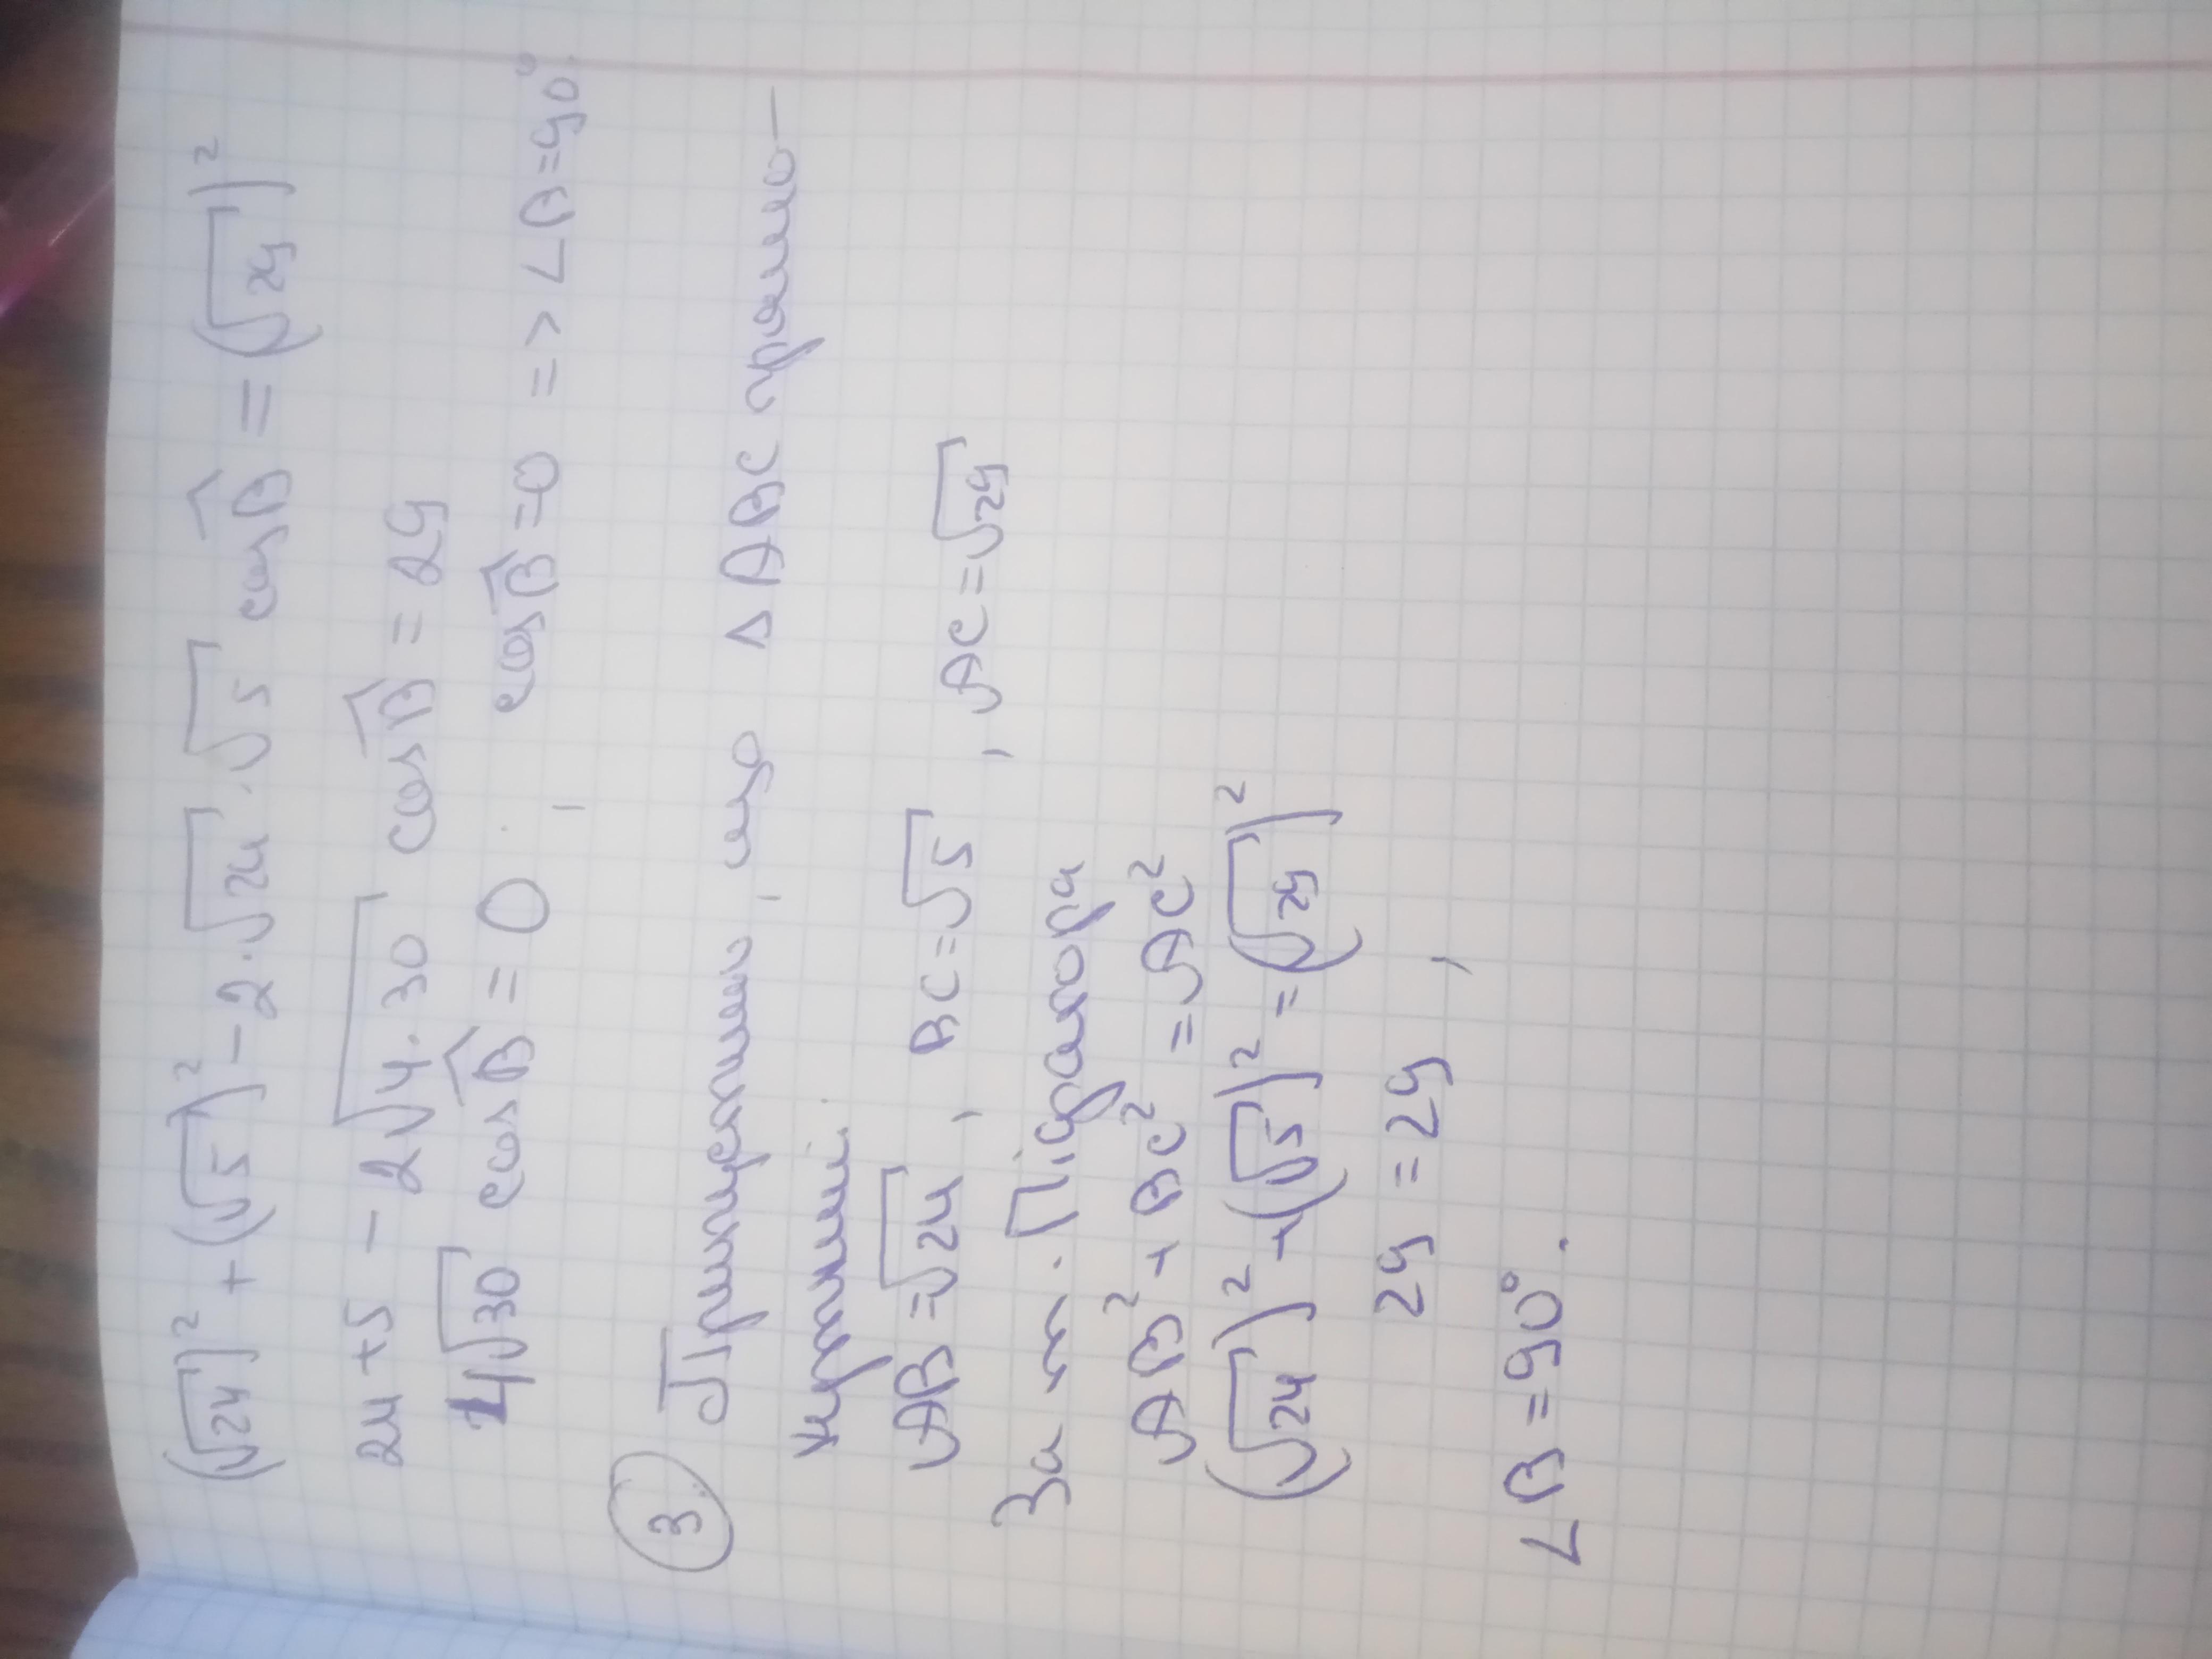 (√24)² + (√5)² - 2·√24·√5 cos B̂ = (√29)²
24+5 - 2√4·30 cos B̂ = 29
4√30 cos B̂ = 0, cos B̂ = 0 => ∠B = 90°.
③ Припустимо, що Δ ABC прямо-
кутний.
AB = √24, BC = √5, AC = √29
За т. Піфагора
AB² + BC² = AC²
(√24)² + (√5)² = (√29)²
29 = 29,
∠B = 90°.